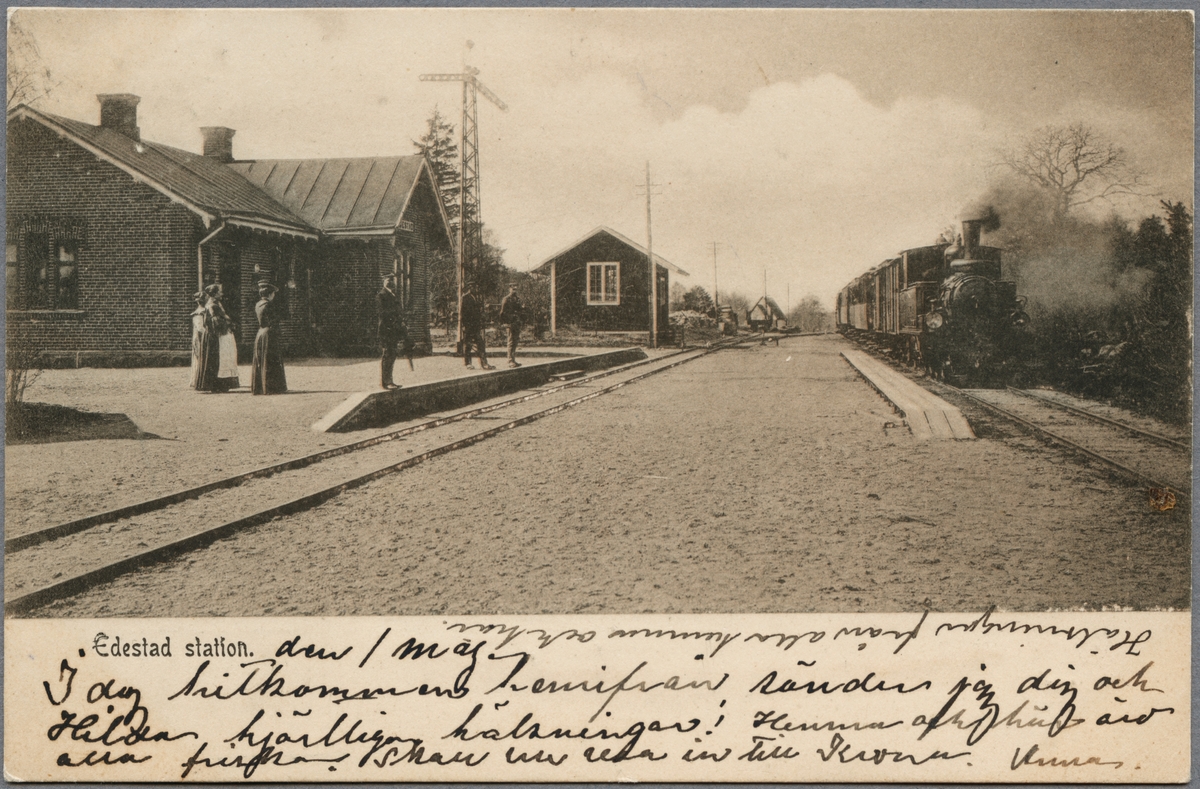 Edestad station. den 1 maj.
I dag hitkommen hemifrån sänder jag dig och
Hilda hjärtliga hälsningar! Hemma och här äro
alla friska. Skall nu resa in till
Anna.
Hälsningar från alla hemma och här.